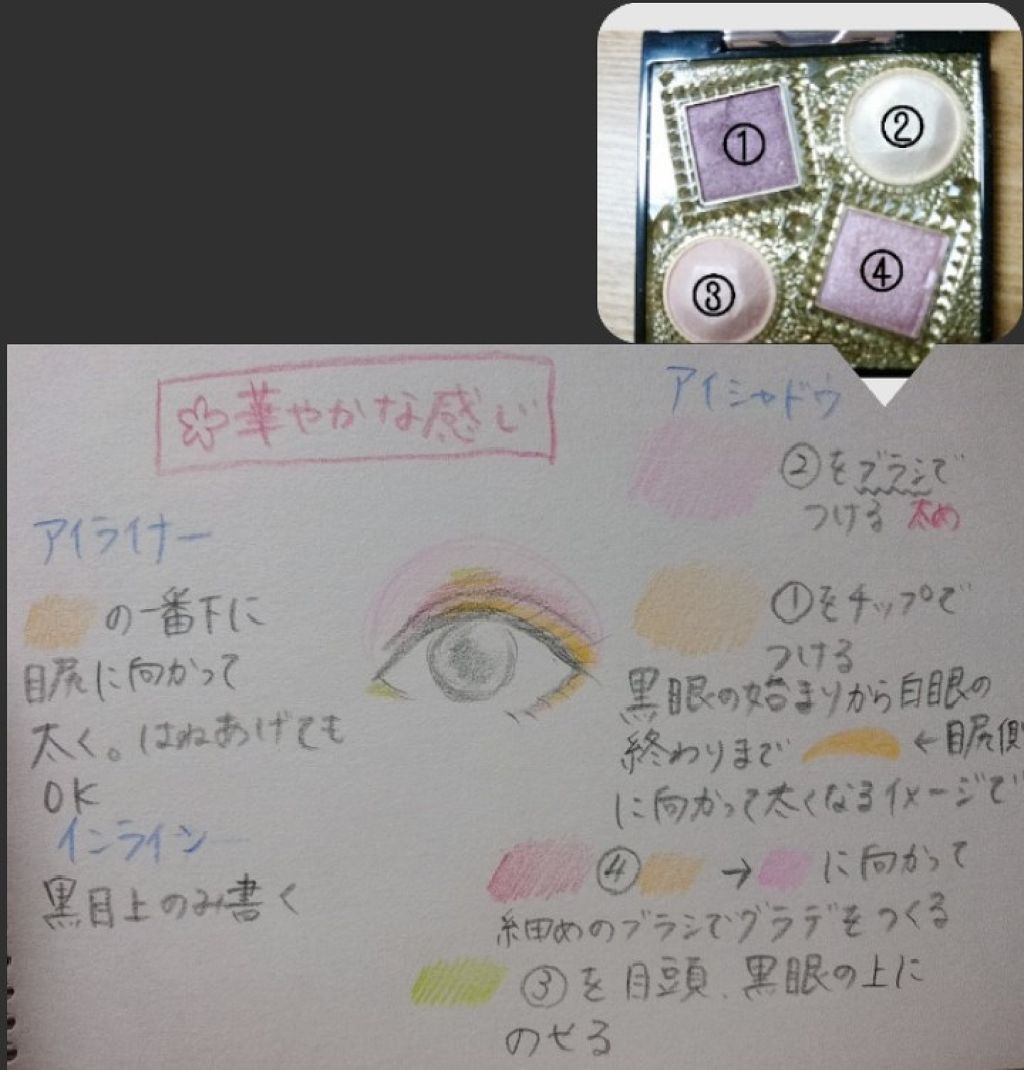 ①
②
③
④
華やかな感じ
アイシャドウ
②をブラシで
つける 太め
①をチップで
つける
黒眼の始まりから白眼の
終わりまで ←目尻側
に向かって太くなるイメージで
④ → に向かって
細めのブラシでグラデをつくる
③を目頭、黒眼の上に
のせる
アイライナー
の一番下に
目尻に向かって
太く。はねあげても
OK
インライン
黒目上のみ書く